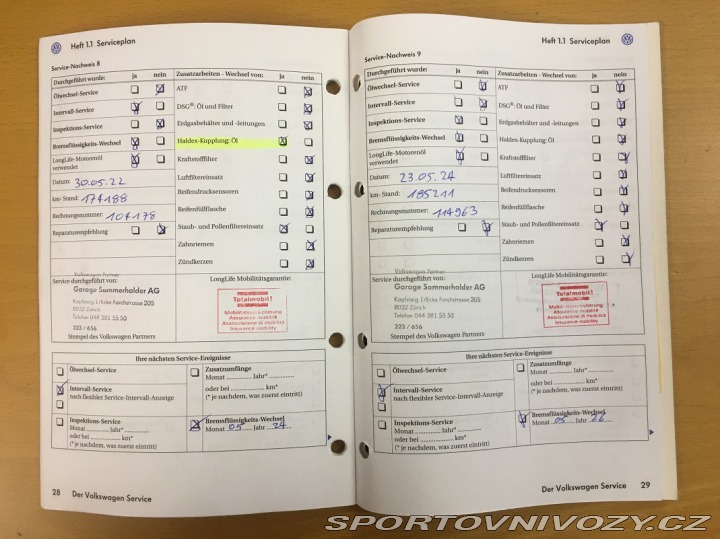 Heft 1.1 Serviceplan
Service-Nachweis 8
Durchgeführt wurde: ja nein
Ölwechsel-Service
Intervall-Service
Inspektions-Service
Bremsflüssigkeits-Wechsel
LongLife-Motorenöl
verwendet
Datum: 30.05.22
km-Stand: 174188
Rechnungsnummer: 104178
Reparaturempfehlung
Zusatzarbeiten - Wechsel von: ja nein
ATF
DSG®: Öl und Filter
Erdgasbehälter und -leitungen
Haldex-Kupplung: Öl
Kraftstofffilter
Luftfiltereinsatz
Reifendrucksensoren
Reifenfüllflasche
Staub- und Pollenfiltereinsatz
Zahnriemen
Zündkerzen
Service durchgeführt von:
Volkswagen Partner
Garage Sommerholder AG
8032 Zürich
Telefon 044 381 55 50
223 / 656
Stempel des Volkswagen Partners
LongLife Mobilitätsgarantie:
Totalmobil!
Mobilitätsversicherung
Assurance mobilité
Assicurazione di mobilità
Insurance mobility
Ihre nächsten Service-Ereignisse
Ölwechsel-Service
Intervall-Service
nach flexibler Service-Intervall-Anzeige
Inspektions-Service
Monat Jahr*
oder bei km*
(* je nachdem, was zuerst eintritt)
Zusatzumfänge
Monat Jahr*
oder bei km*
(* je nachdem, was zuerst eintritt)
Bremsflüssigkeits-Wechsel
Monat 05 Jahr 24
28 Der Volkswagen Service
Heft 1.1 Serviceplan
Service-Nachweis 9
Durchgeführt wurde: ja nein
Ölwechsel-Service
Intervall-Service
Inspektions-Service
Bremsflüssigkeits-Wechsel
LongLife-Motorenöl
verwendet
Datum: 23.05.24
km-Stand: 185211
Rechnungsnummer: 114963
Reparaturempfehlung
Zusatzarbeiten - Wechsel von: ja nein
ATF
DSG®: Öl und Filter
Erdgasbehälter und -leitungen
Haldex-Kupplung: Öl
Kraftstofffilter
Luftfiltereinsatz
Reifendrucksensoren
Reifenfüllflasche
Staub- und Pollenfiltereinsatz
Zahnriemen
Zündkerzen
Service durchgeführt von:
Volkswagen Partner
Garage Sommerholder AG
8032 Zürich
Telefon 044 381 55 50
223 / 656
Stempel des Volkswagen Partners
LongLife Mobilitätsgarantie:
Totalmobil!
Mobilitätsversicherung
Assurance mobilité
Assicurazione di mobilità
Insurance mobility
Ihre nächsten Service-Ereignisse
Ölwechsel-Service
Intervall-Service
nach flexibler Service-Intervall-Anzeige
Inspektions-Service
Monat Jahr*
oder bei km*
(* je nachdem, was zuerst eintritt)
Zusatzumfänge
Monat Jahr*
oder bei km*
(* je nachdem, was zuerst eintritt)
Bremsflüssigkeits-Wechsel
Monat 05 Jahr 26
Der Volkswagen Service 29
SPORTOVNIVOZY.CZ